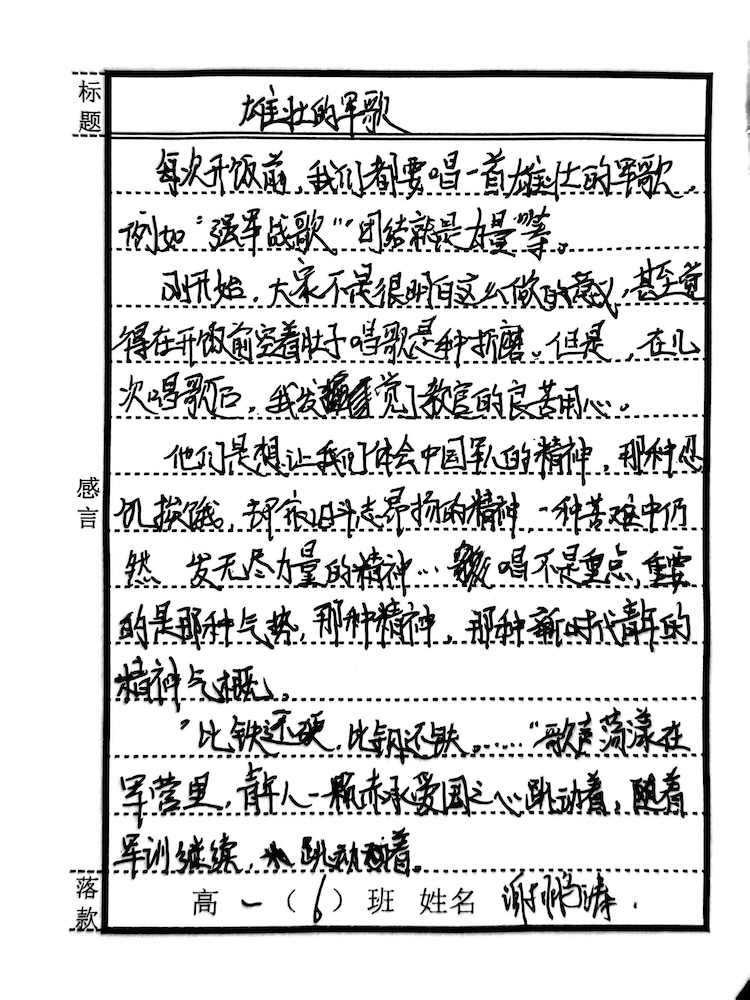 标题
雄壮的军歌
每次开饭前，我们都要唱一首雄壮的军歌，
例如“强军战歌”“团结就是力量”等。
刚开始，大家不是很明白这么做的意义，甚至觉
得在开饭前空着肚子唱歌是种折磨。但是，在几
次唱歌后，我发觉了教官的良苦用心。
感言
他们是想让我们体会中国军人的精神，那种忍
饥挨饿，却依旧斗志昂扬的精神，一种苦难中仍
然 发无尽力量的精神… 唱不是重点，重要
的是那种气势，那种精神，那种新时代青年的
精神气概。
“比铁还硬，比钢还铁。……”歌声荡漾在
军营里，青年人一颗赤承爱国之心跳动着，随着
军训继续， 跳动着。
落款
高一（6）班 姓名 谢